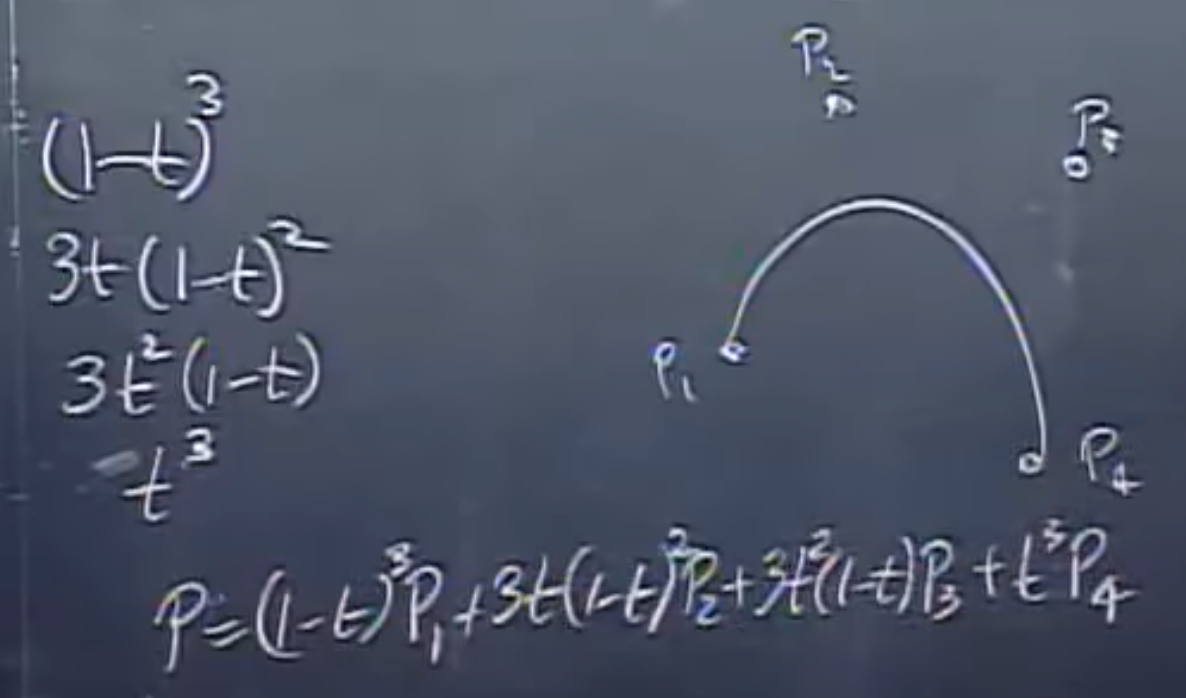 (1-t)³
3t(1-t)²
3t²(1-t)
t³
P₂
P₃
P₁
P₄
P=(1-t)³P₁+3t(1-t)²P₂+3t²(1-t)P₃+t³P₄